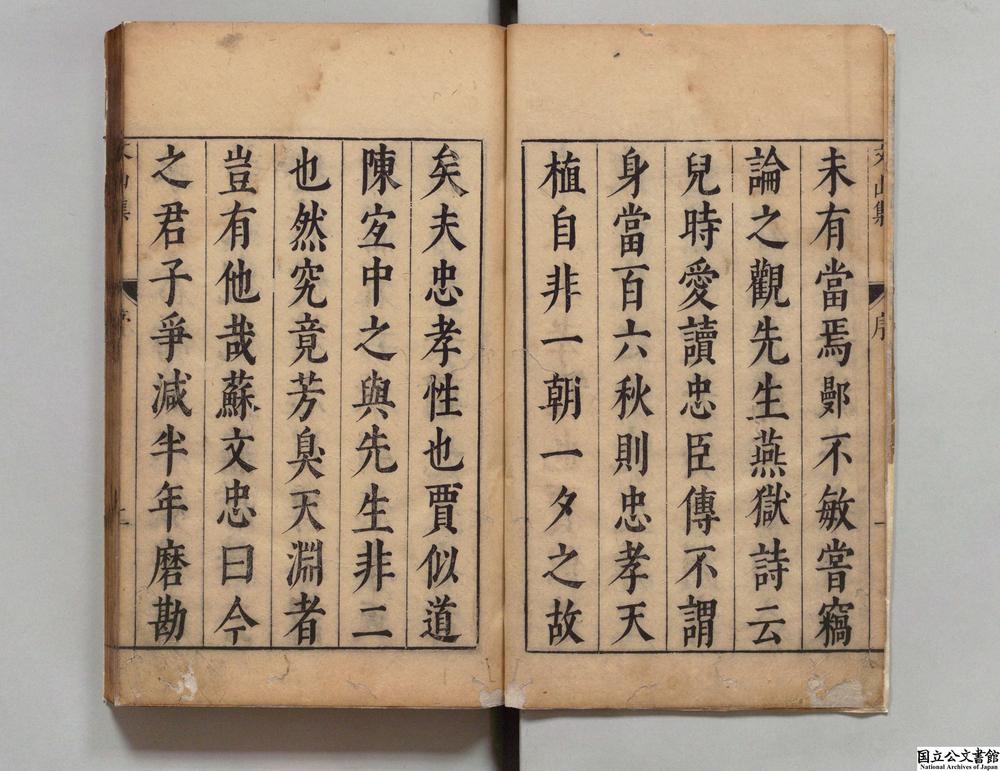 未有當焉鄭不敏嘗竊
論之觀先生燕獄詩云
兒時愛讀忠臣傳不謂
身當百六秋則忠孝天
植自非一朝一夕之故
矣夫忠孝性也賈似道
陳宜中之與先生非二
也然究竟芳臭天淵者
豈有他哉蘇文忠曰今
之君子爭減半年磨勘
文山集
序
国立公文書館
National Archives of Japan